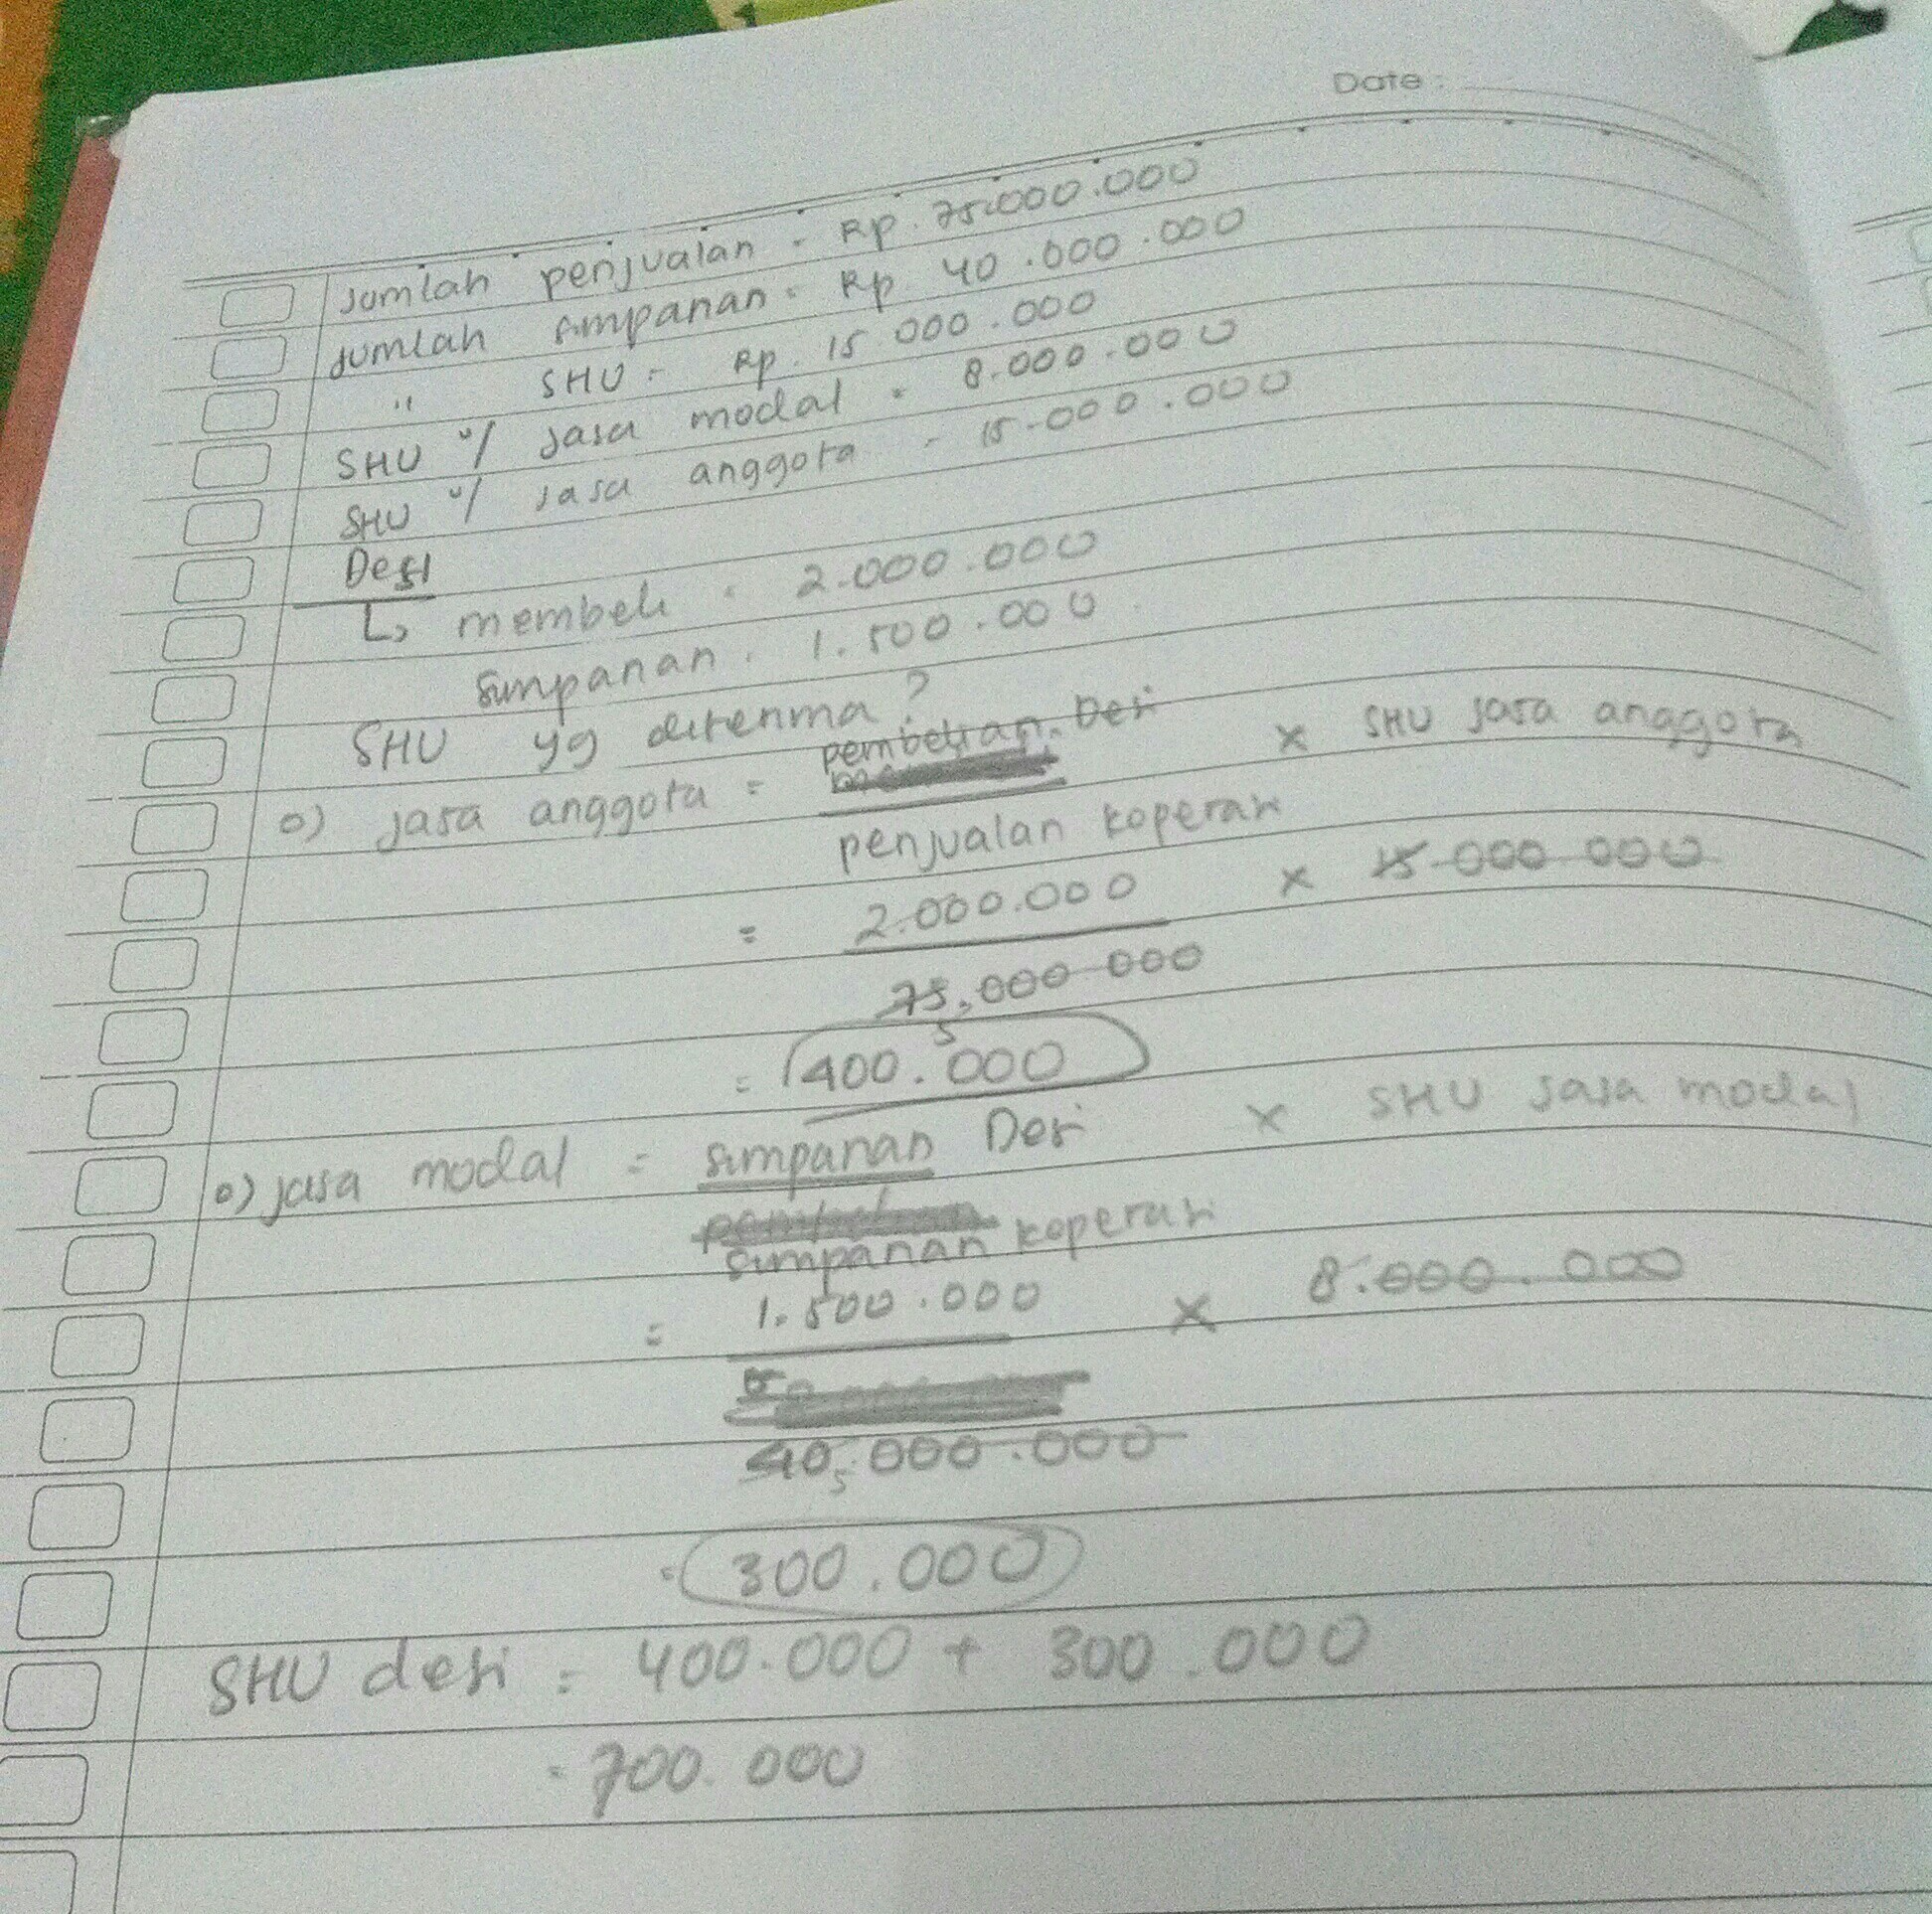 Date :
Jumlah penjualan = Rp. 75.000.000
Jumlah simpanan = Rp. 40.000.000
" SHU = Rp. 15 000.000
SHU u/ jasa modal = 8.000.000
SHU u/ jasa anggota = 15.000.000
Desi
↳ membeli = 2.000.000
simpanan = 1.500.000
SHU yg diterima?
o) jasa anggota = pembelian Desi × SHU jasa anggota
penjualan koperasi
= 2.000.000 × 15 000 000
75.000 000
5
= 400.000
o) jasa modal = simpanan Desi × SHU jasa modal
simpanan koperasi
= 1.500.000 × 8.000.000
40.000.000
5
= 300.000
SHU desi = 400.000 + 300.000
= 700.000